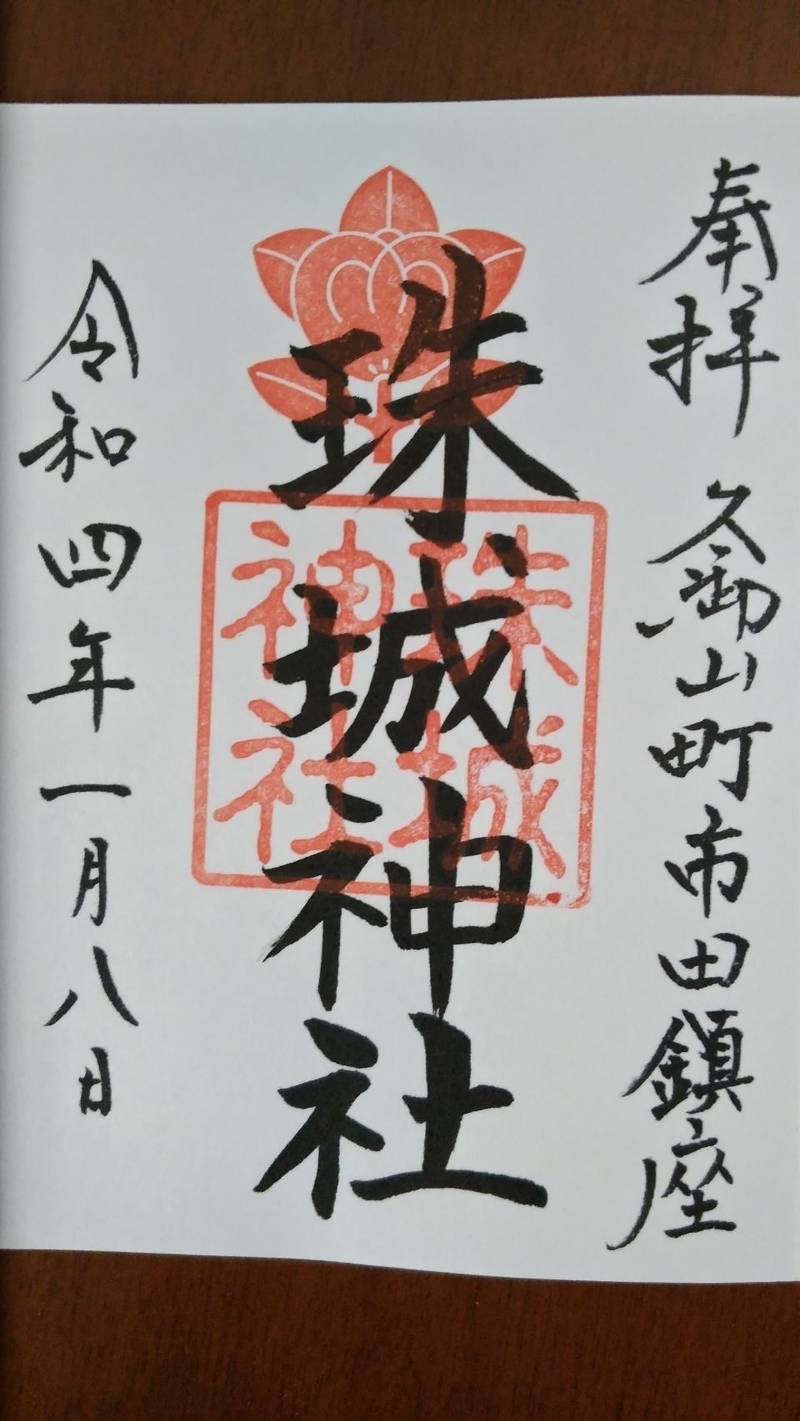 奉拝 久御山町市田鎮座
珠城神社
珠城
神社
令和四年一月八日